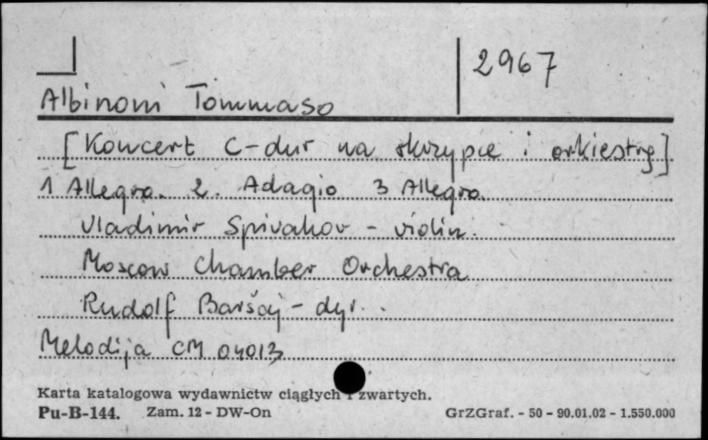 2967
Albinoni Tommaso
[Koncert C-dur na skrzypce i orkiestrę]
1 Allegro. 2. Adagio 3 Allegro.
Vladimir Spivakov - violin.
Moscow Chamber Orchestra
Rudolf Baršaj - dyr.
Melodija CM 04013
Karta katalogowa wydawnictw ciągłych i zwartych.
Pu-B-144. Zam. 12 - DW-On GrZGraf. - 50 - 90.01.02 - 1.550.000